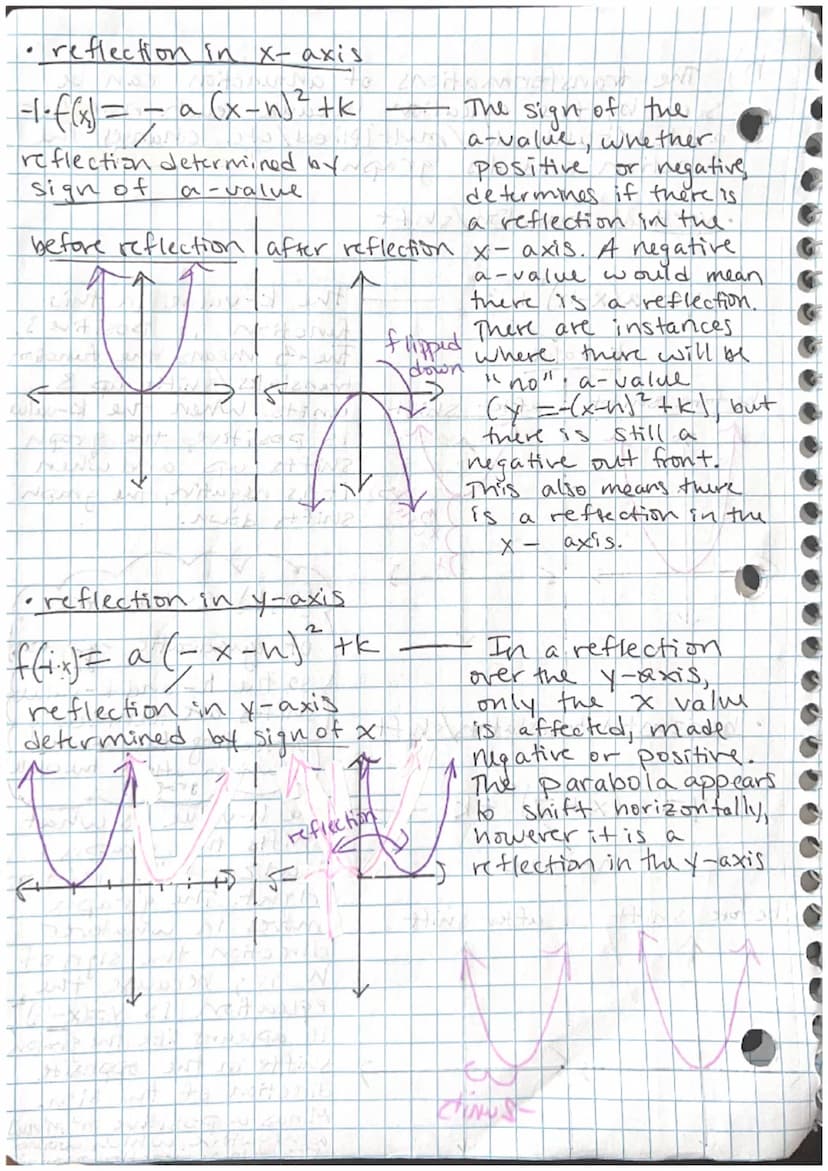 • reflection in x-axis
-1·f(x) = - a (x-h)² + k
reflection determined by
sign of a-value
The sign of the
a-value, whether
positive or negative,
determines if there is
a reflection in the
x- axis. A negative
a-value would mean
there is a reflection.
There are instances
where there will be
"no" a-value
(y =-(x-h)² + k), but
there is still a
negative out front.
This also means there
is a reflection in the
x - axis.
before reflection | after reflection
flipped
down
• reflection in y-axis
f(-1·x) = a (- x-h)² + k
reflection in y-axis
determined by sign of x
In a reflection
over the y-axis,
only the x value
is affected, made
negative or positive.
The parabola appears
to shift horizontally,
however it is a
reflection in the y-axis
reflection